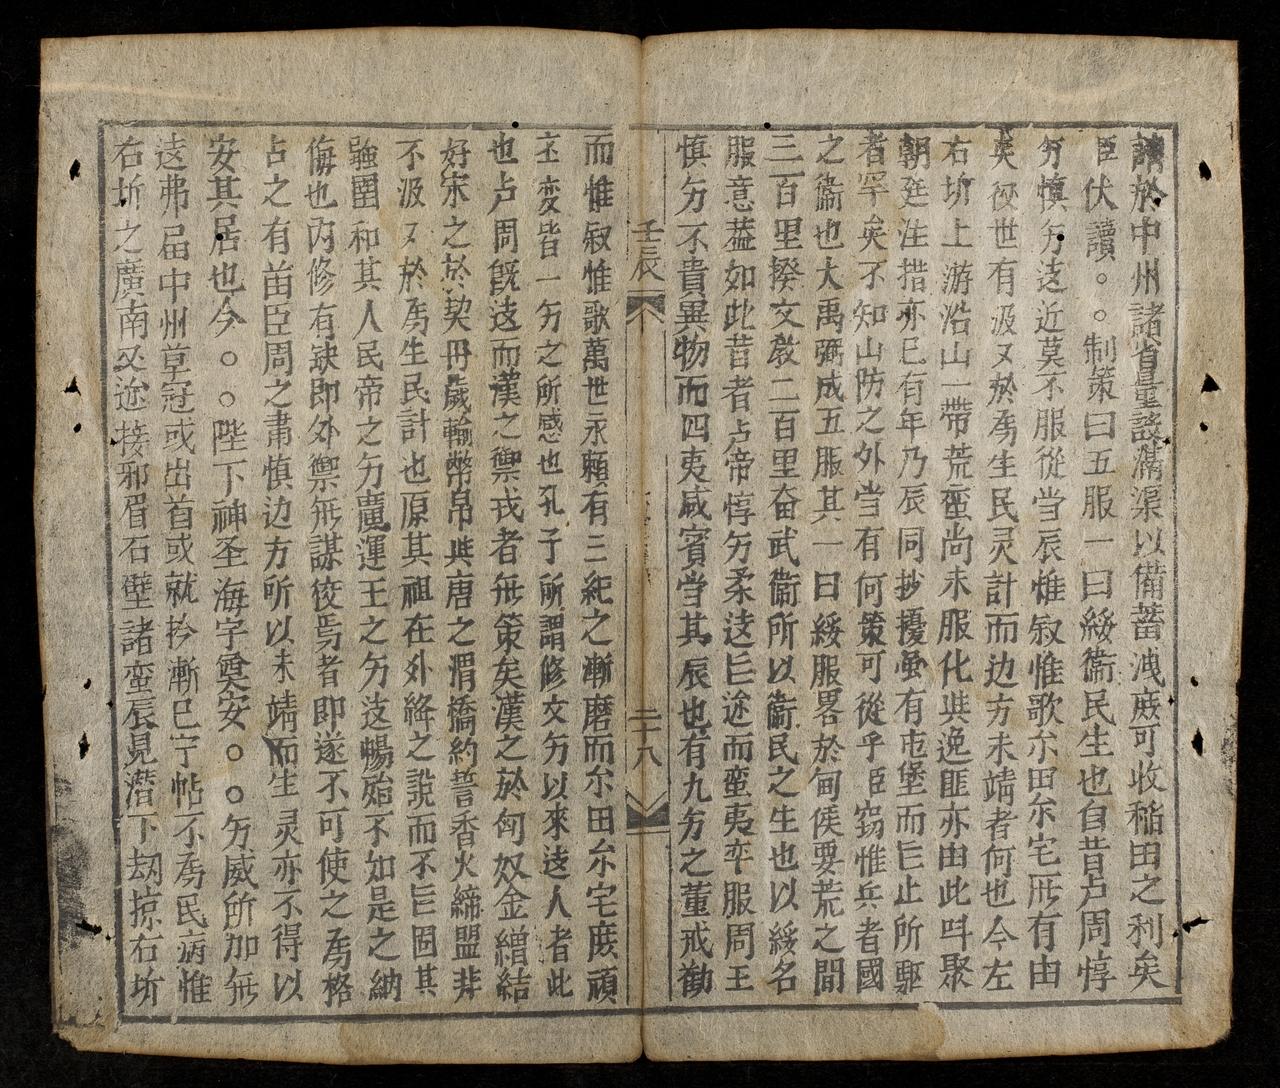 請於中州諸省量設溝渠以備蓄洩庶可收稲田之利矣
臣伏讀○○制策曰五服一曰綏衞民生也自昔占周惇
夯慎夯迲近莫不服從当辰惟叙惟歌尒田尒宅厐有由
矣後世有汲又於為生民灵計而边方未靖者何也今左
右圻上游沿山一帶荒蛮尚未服化與逸匪亦由此呌聚
朝廷注措亦已有年乃辰同抄擾虽有屯堡而㠯止所駆
者罕矣不知山防之外当有何策可從乎臣窃惟兵者國
之衞也大禹弼成五服其一曰綏服畧於甸侯要荒之間
三百里揆文教二百里奋武衞所以衞民之生也以綏名
服意葢如此昔者占帝惇夯柔迲㠯迩而蛮夷卒服周王
慎夯不貴異物而四夷咸賓当其辰也有九夯之董戒勧
壬辰
二十八
而惟叙惟歌萬世永頼有三紀之漸磨而尒田尒宅庶頑
丕変皆一夯之所感也孔子所謂修文夯以來迲人者此
也占周旣迲而漢之禦戎者無策矣漢之於匈奴金繒結
好宋之於契丹歲輸幣帛與唐之渭橋約誓香火締盟非
不汲又於為生民計也原其祖在外絳之說而不㠯固其
強圉和其人民帝之夯廣運王之夯迲暢殆不如是之納
侮也内修有缺即外禦無謀後焉者即遂不可使之為格
占之有苗臣周之肅慎边方所以未靖而生灵亦不得以
安其居也今○○陛下神圣海宇奠安○○夯威所加無
迲弗届中州草冠或出首或就衿漸已宁帖不為民病惟
右圻之廣南又迩接邪眉石壁諸蛮辰見潛下刼掠右圻